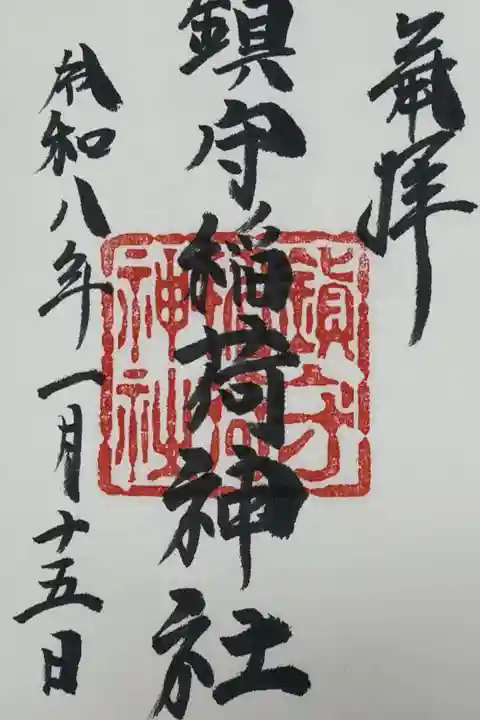 奉拝
鎮守稲荷神社
鎮守
稲荷
神社
令和八年一月十五日